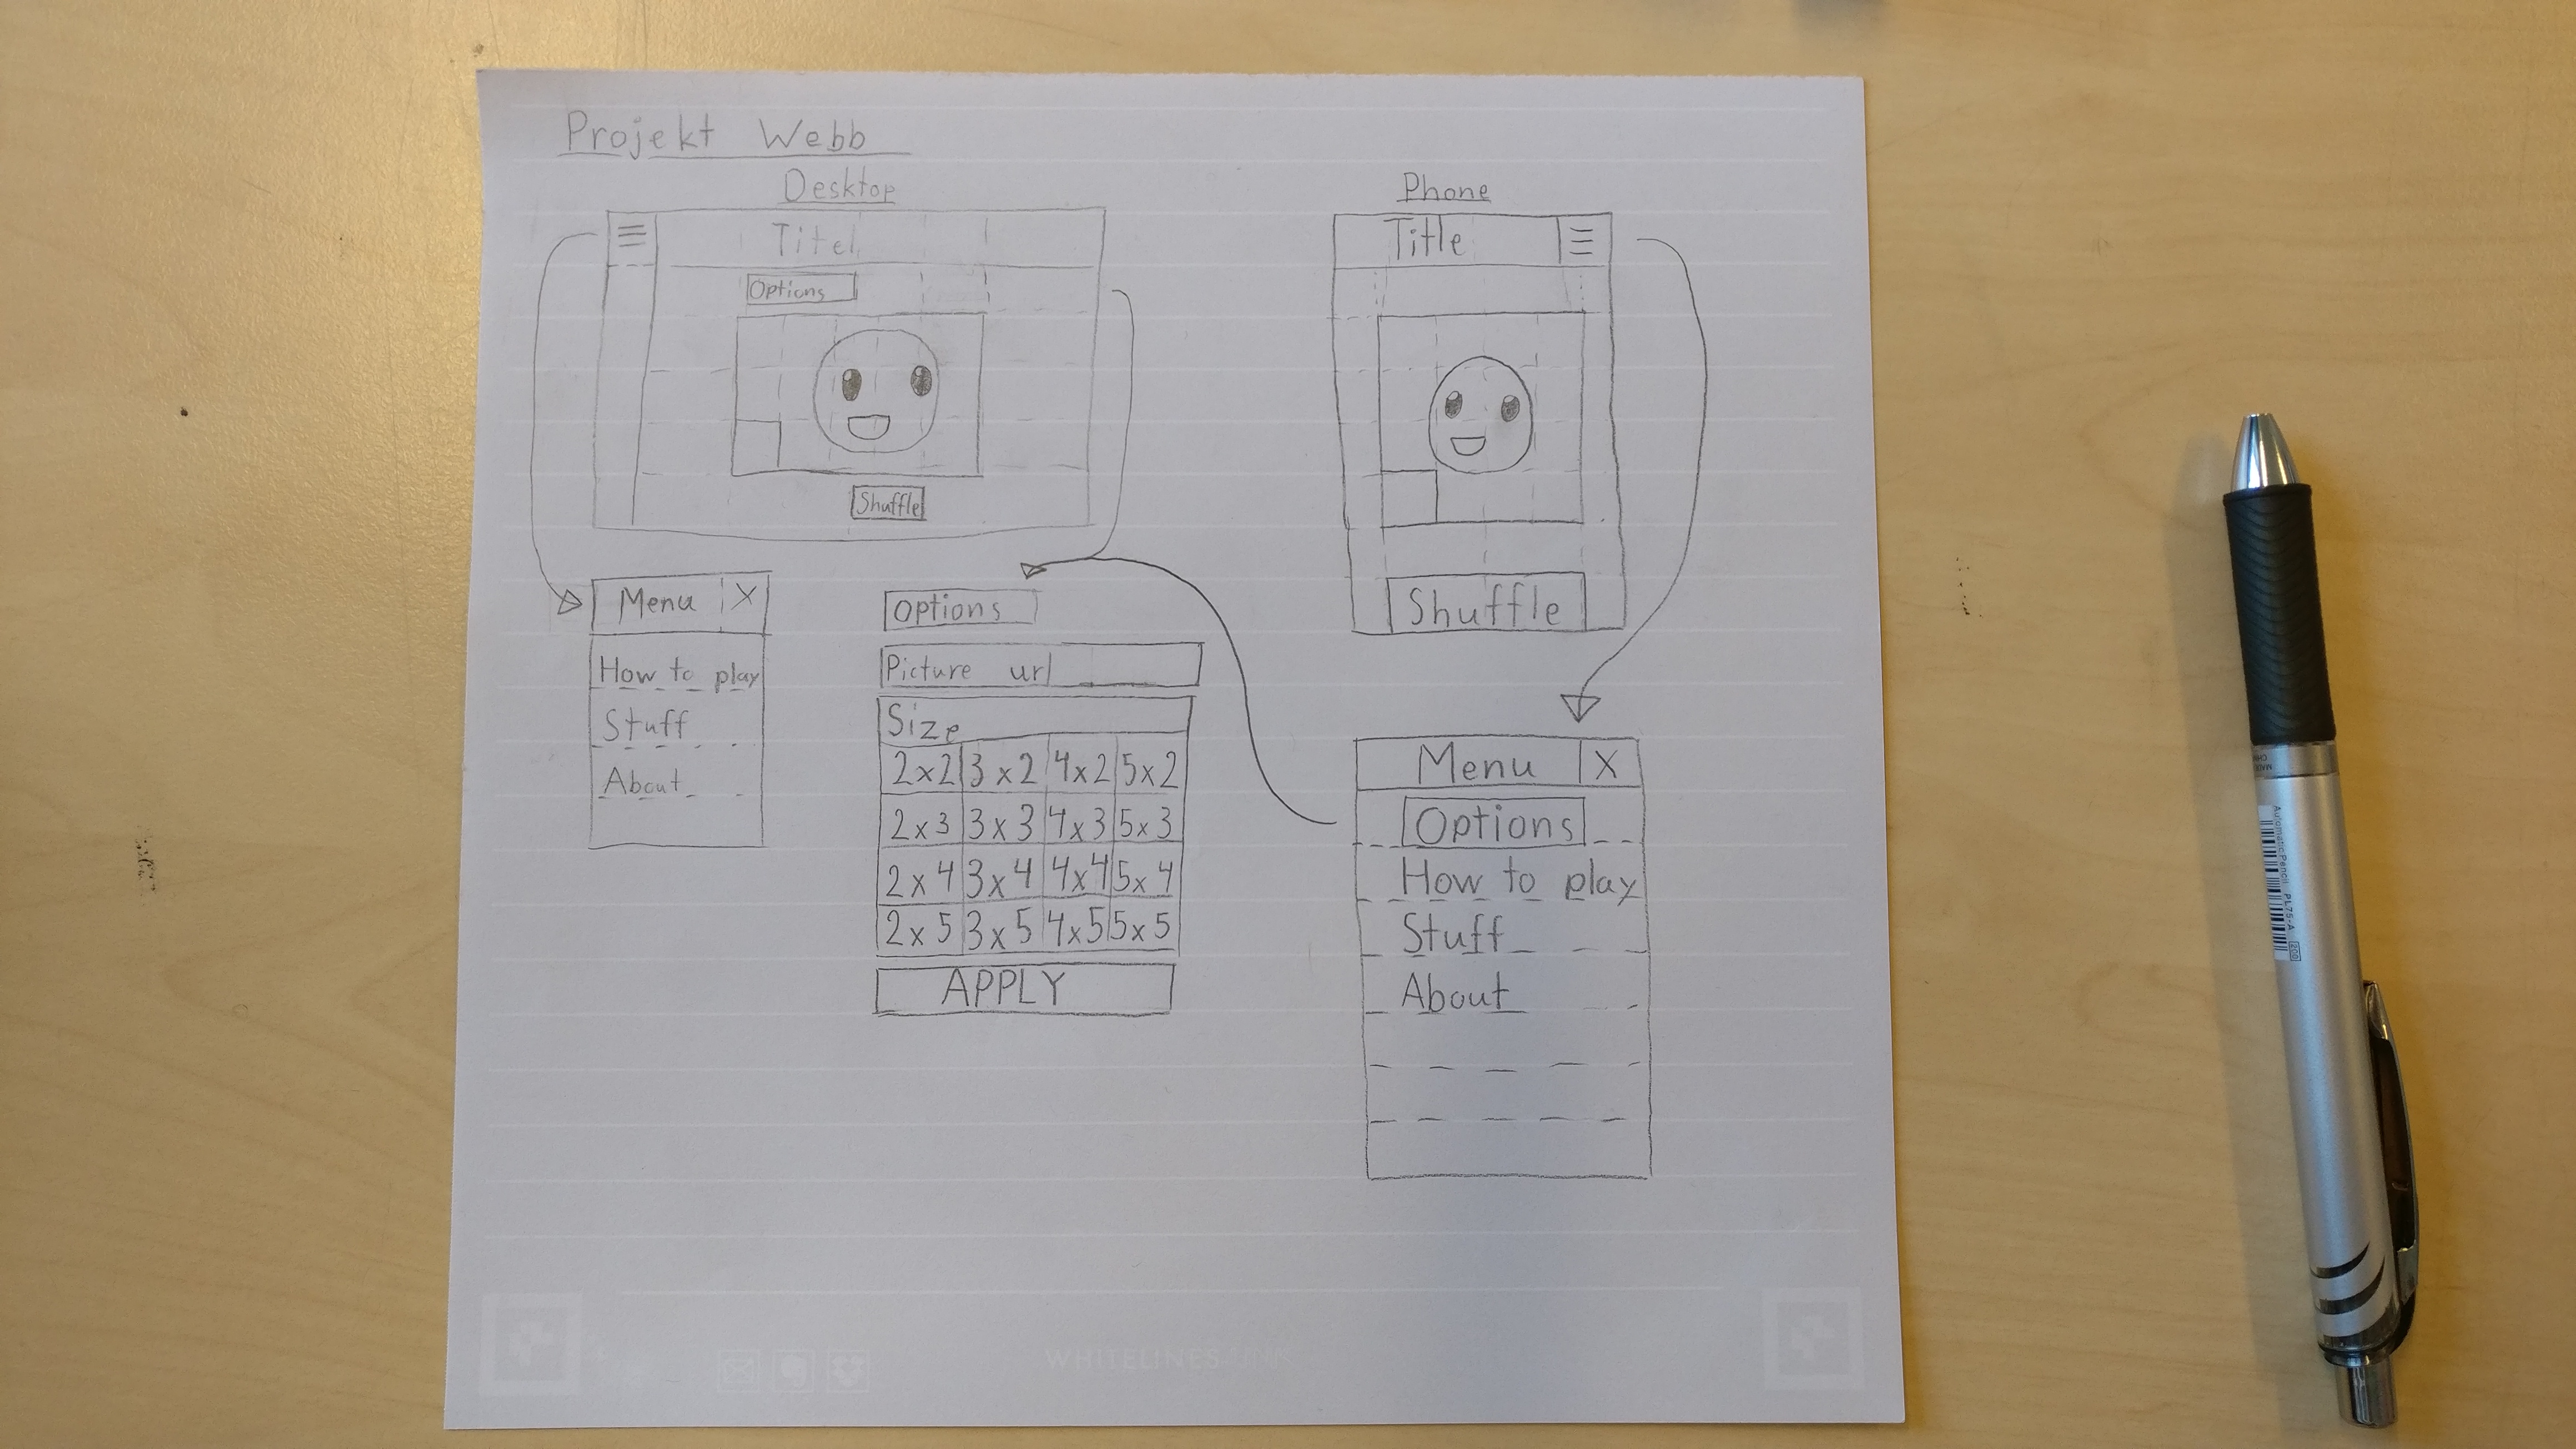 Projekt Webb
Desktop
Titel
Options
Shuffle
Phone
Title
Shuffle
Menu X
How to play
Stuff
About
Options
Picture url
Size
2x2 3x2 4x2 5x2
2x3 3x3 4x3 5x3
2x4 3x4 4x4 5x4
2x5 3x5 4x5 5x5
APPLY
Menu X
Options
How to play
Stuff
About
WHITELINES LINK
Automatic Pencil PL75-A